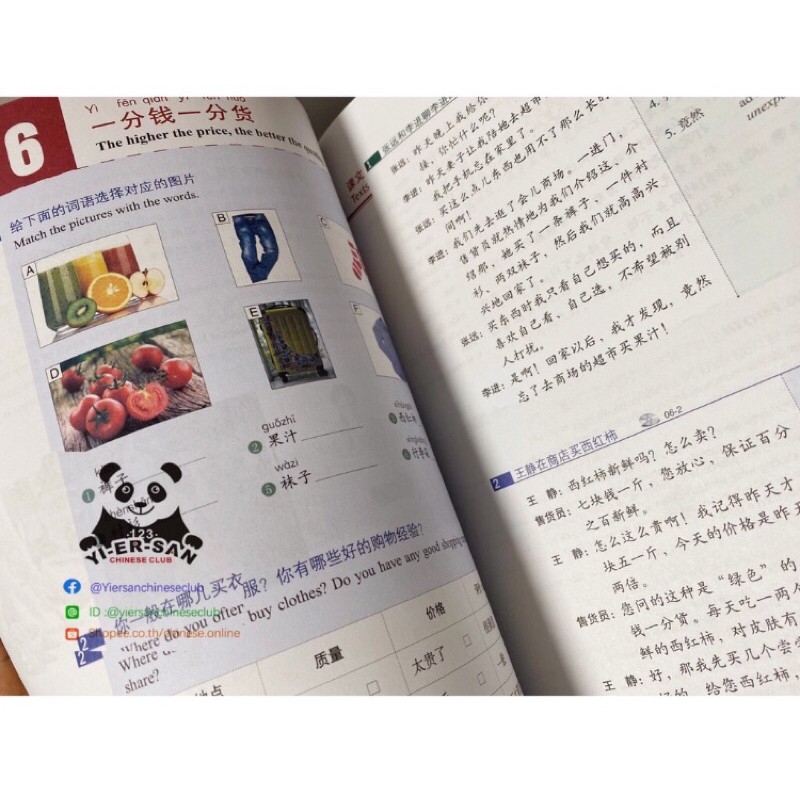 6
Yì fēn qián yì fēn huò
一分钱一分货
The higher the price, the better the
给下面的词语选择对应的图片
Match the pictures with the words.
A
B
C
D
E
F
1 裤子
guǒzhī
2 果汁
3 西红柿
wàzi
5 袜子
6 行李箱
123
YI-ER-SAN
CHINESE CLUB
@Yiersanchineseclub
ID :@yiersanchineseclub
Shopee.co.th/chinese.online
2 你一般在哪儿买衣服？你有哪些好的购物经验？
Where do you often buy clothes? Do you have any good shopping
share?
地点
质量
价格
太贵了
课文
Texts
1 张远和李进聊李进
张远：昨天晚上我给你
接，你忙什么呢？
李进：昨天妻子让我陪她去超市
我把手机忘在家里了。
张远：买这么点儿东西也用不了那么长的
间啊！
李进：我们先去逛了会儿商场。一进门，
售货员就热情地为我们介绍这、介
绍那，她买了一条裤子、一件衬
衫、两双袜子，然后我们就高高兴
兴地回家了。
张远：买东西时我只看自己想买的，而且
喜欢自己看、自己选，不希望被别
人打扰。
李进：是啊！回家以后，我才发现，竟然
忘了去商场的超市买果汁！
4.
5. 竟然
ad
unexp
2 王静在商店买西红柿
06-2
王 静：西红柿新鲜吗？怎么卖？
售货员：七块钱一斤，您放心，保证百分
之百新鲜。
王 静：怎么这么贵啊！我记得昨天才
块五一斤，今天的价格是昨天
两倍。
售货员：您问的这种是“绿色”的
钱一分货。每天吃一两个
鲜的西红柿，对皮肤有
王 静：好，那我先买几个尝尝
好的，给您西红柿，